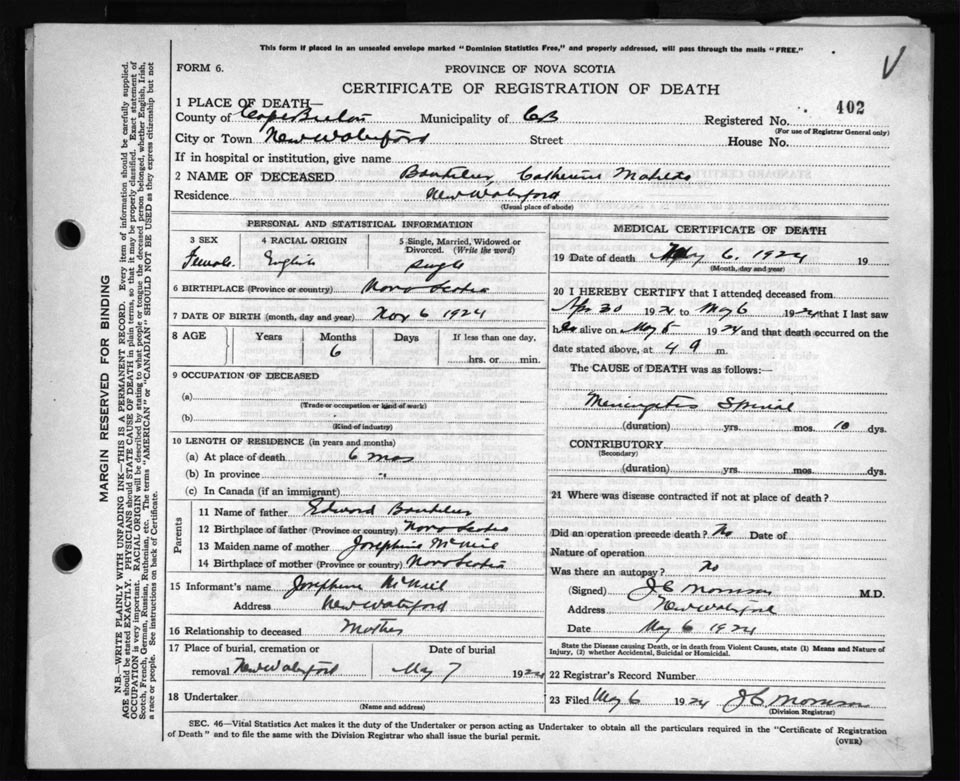 This form if placed in an unsealed envelope marked "Dominion Statistics Free," and properly addressed, will pass through the mails "FREE."
V
FORM 6.
PROVINCE OF NOVA SCOTIA
CERTIFICATE OF REGISTRATION OF DEATH
402
1 PLACE OF DEATH—
County of Cape Breton Municipality of CB Registered No.
(For use of Registrar General only)
City or Town New Waterford Street House No.
If in hospital or institution, give name
2 NAME OF DECEASED Catherine
Residence New Waterford
(Usual place of abode)
PERSONAL AND STATISTICAL INFORMATION
3 SEX 4 RACIAL ORIGIN 5 Single, Married, Widowed or Divorced. (Write the word)
Female English single
6 BIRTHPLACE (Province or country) Nova Scotia
7 DATE OF BIRTH (month, day and year) Nov 6 1924
8 AGE Years Months Days If less than one day,
6 hrs. or min.
9 OCCUPATION OF DECEASED
(a)
(Trade or occupation or kind of work)
(b)
(Kind of industry)
10 LENGTH OF RESIDENCE (in years and months)
(a) At place of death 6 mos
(b) In province "
(c) In Canada (if an immigrant)
Parents
11 Name of father Edward
12 Birthplace of father (Province or country) Nova Scotia
13 Maiden name of mother Josephine McNeil
14 Birthplace of mother (Province or country) Nova Scotia
15 Informant's name Josephine McNeil
Address New Waterford
16 Relationship to deceased Mother
17 Place of burial, cremation or removal Date of burial
New Waterford May 7 192
18 Undertaker
(Name and address)
MEDICAL CERTIFICATE OF DEATH
19 Date of death May 6, 1924 19
(Month, day and year)
20 I HEREBY CERTIFY that I attended deceased from
Apr 30 1924 to May 6 1924 that I last saw
her alive on May 5 1924 and that death occurred on the
date stated above, at 4 9 m.
The CAUSE of DEATH was as follows:—
Meningitis Spinal
(duration) yrs. mos. 10 dys.
CONTRIBUTORY
(Secondary)
(duration) yrs. mos. dys.
21 Where was disease contracted if not at place of death?
Did an operation precede death? No Date of
Nature of operation
Was there an autopsy? No
(Signed) M.D.
Address New Waterford
Date May 6 1924
State the Disease causing Death, or in death from Violent Causes, state (1) Means and Nature of Injury, (2) whether Accidental, Suicidal or Homicidal.
22 Registrar's Record Number
23 Filed May 6 1924
(Division Registrar)
SEC. 46—Vital Statistics Act makes it the duty of the Undertaker or person acting as Undertaker to obtain all the particulars required in the "Certificate of Registration
of Death" and to file the same with the Division Registrar who shall issue the burial permit.
(OVER)
MARGIN RESERVED FOR BINDING
N.B.—WRITE PLAINLY WITH UNFADING INK—THIS IS A PERMANENT RECORD. Every item of information should be carefully supplied.
AGE should be stated EXACTLY. PHYSICIANS should STATE CAUSE OF DEATH in plain terms, so that it may be properly classified. Exact statement of
OCCUPATION is very important. RACIAL ORIGIN will be described by stating to what people or tongue the deceased person belonged, whether English, Irish,
Scotch, French, German, Russian, Ruthenian, etc. The terms "AMERICAN" or "CANADIAN" SHOULD NOT BE USED as they express citizenship but not
a race or people. See instructions on back of Certificate.